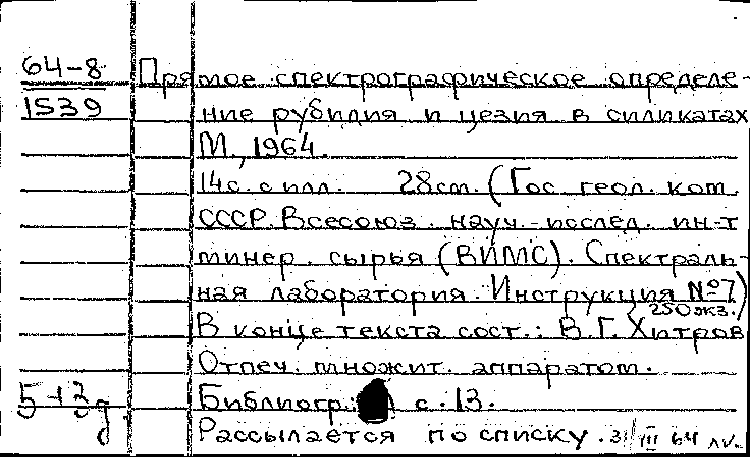 64-8
1539
Прямое спектрографическое определе-
ние рубидия и цезия в силикатах
М., 1964.
14с. с илл. 28см. (Гос. геол. ком.
СССР. Всесоюз. науч.-исслед. ин-т
минер. сырья (ВИМС). Спектраль-
ная лаборатория. Инструкция №7)
250экз.
В конце текста сост.: В.Г. Хитров
Отпеч. множит. аппаратом.
Библиогр.: с. 13.
Рассылается по списку. 31/III 64